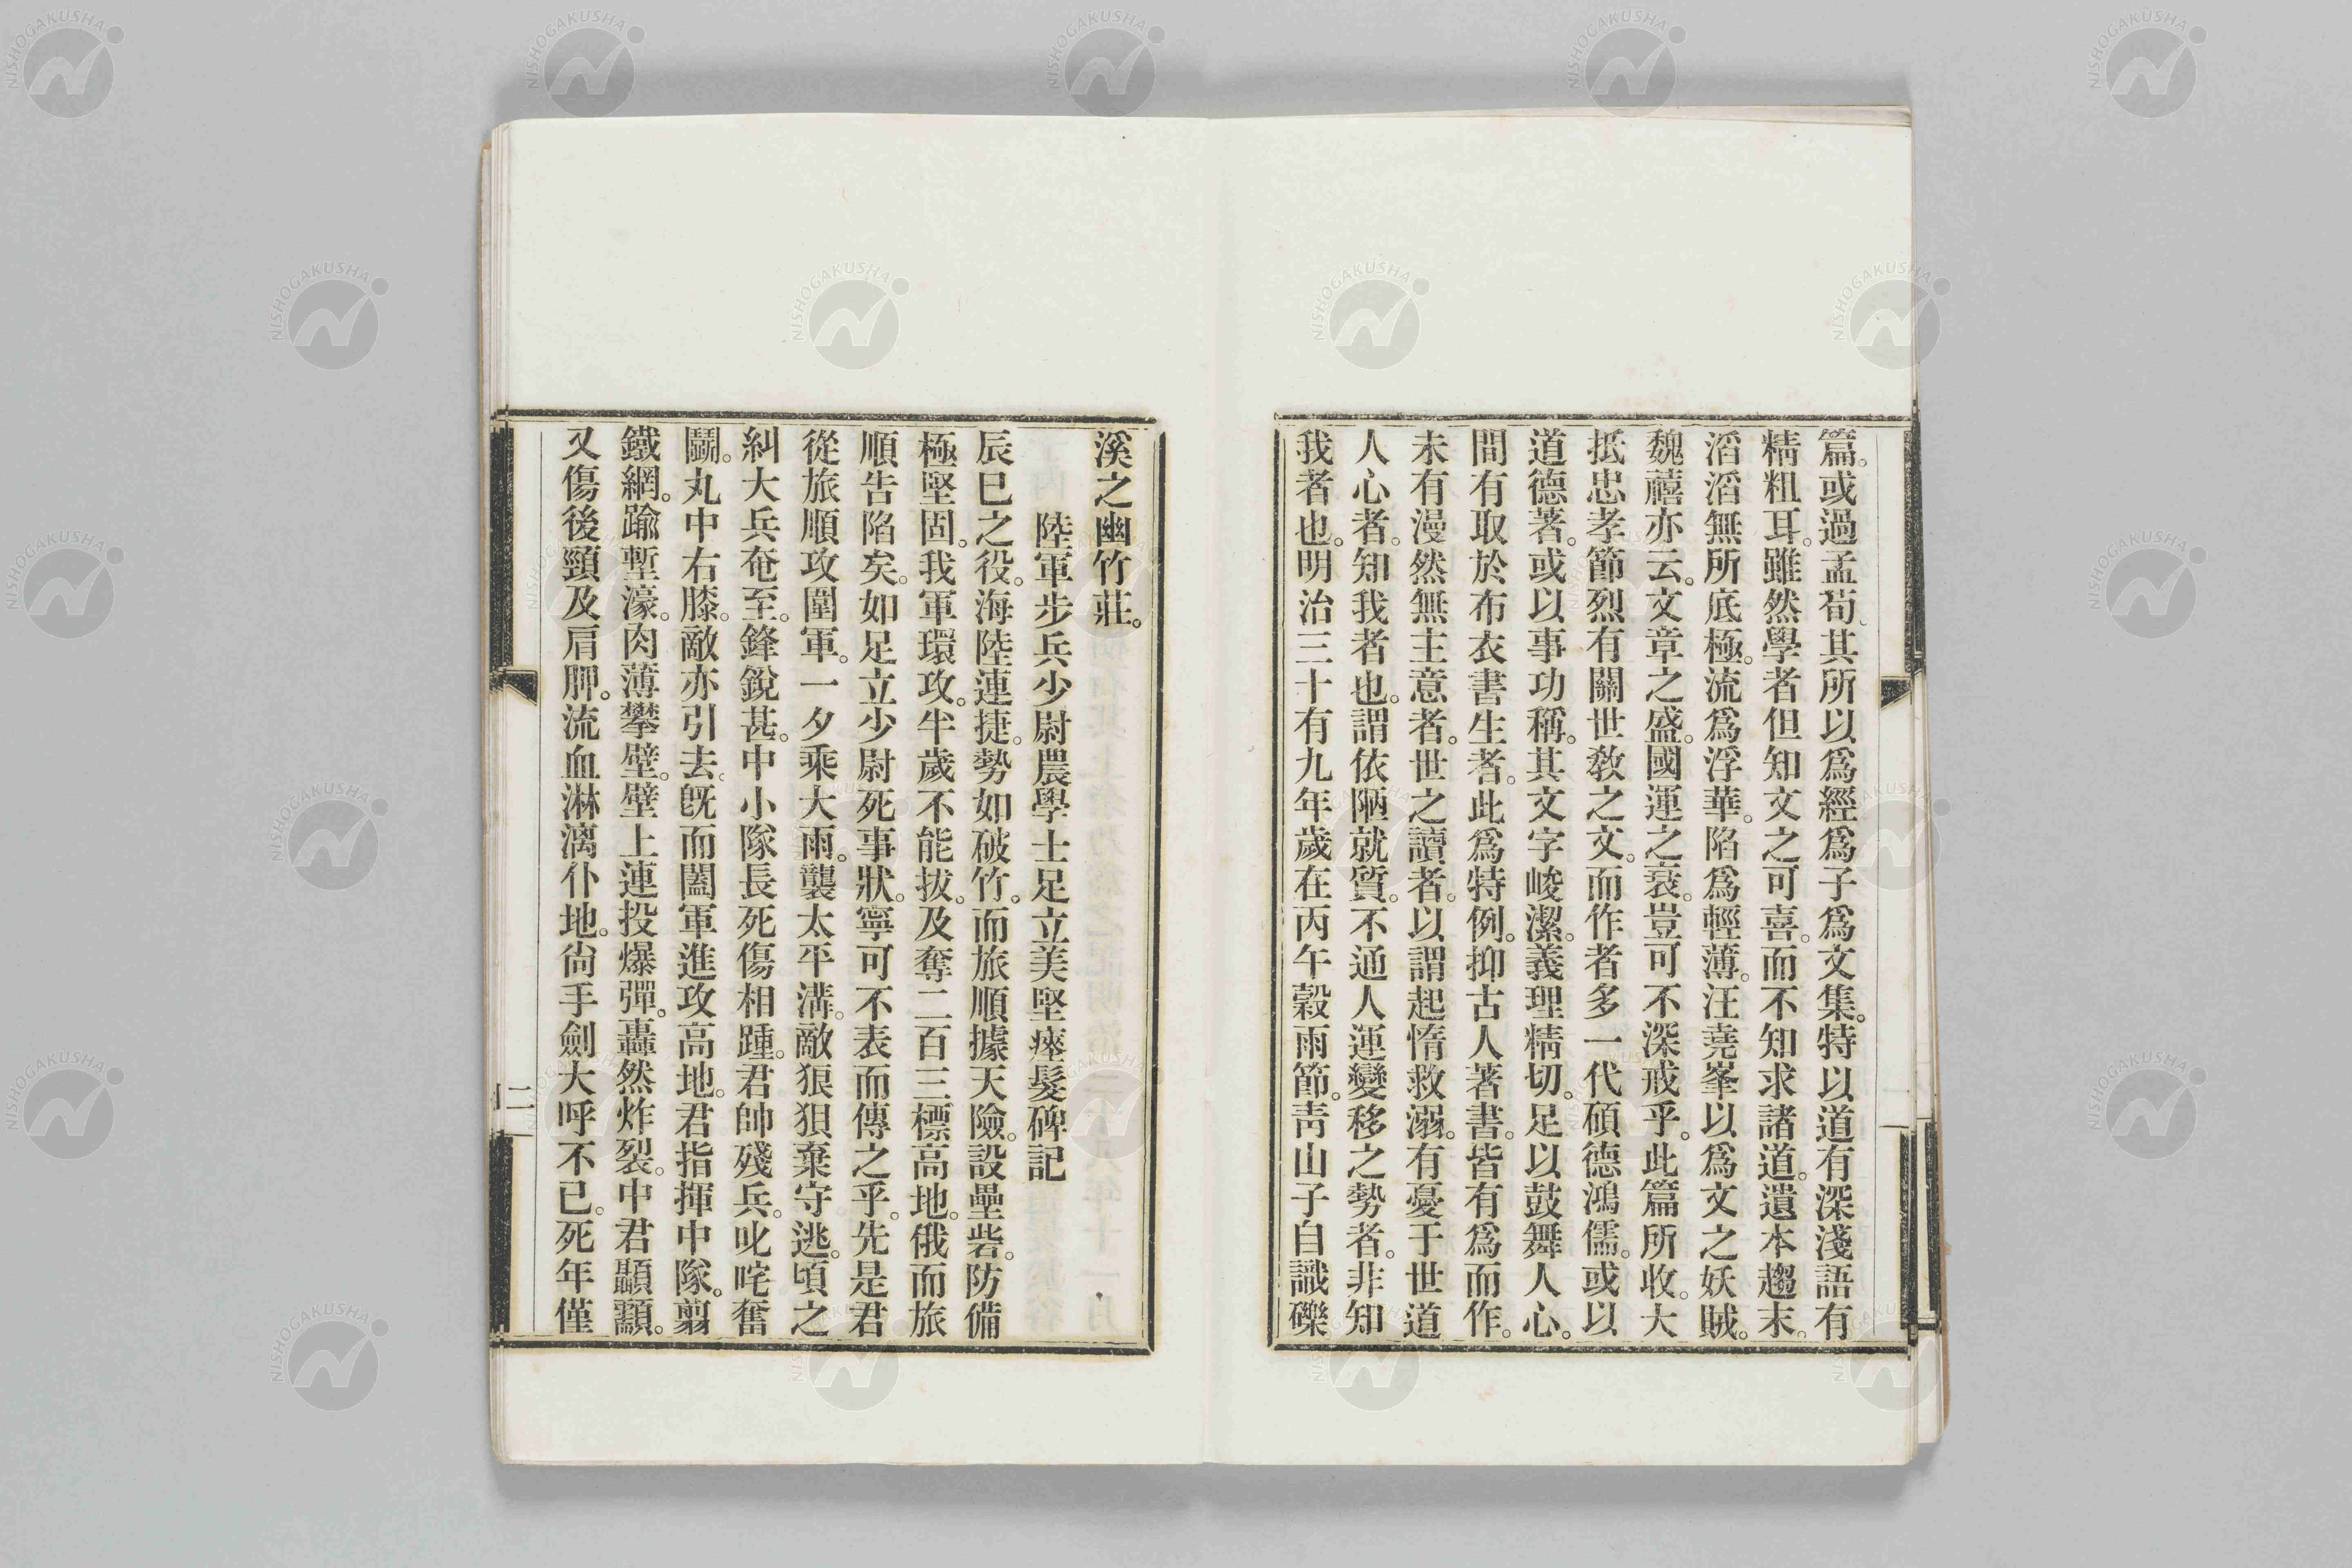 篇。或過孟荀。其所以爲經爲子爲文集。特以道有深淺語有
精粗耳。雖然學者但知文之可喜。而不知求諸道。遺本趨末。
滔滔無所底極。流爲浮華。陷爲輕薄。汪堯峯以爲文之妖賊。
魏禧亦云。文章之盛。國運之衰。豈可不深戒乎。此篇所收。大
抵忠孝節烈有關世敎之文。而作者多一代碩德鴻儒。或以
道德著。或以事功稱。其文字峻潔。義理精切。足以鼓舞人心。
間有取於布衣書生者。此爲特例。抑古人著書。皆有爲而作。
未有漫然無主意者。世之讀者。以謂起惰救溺。有憂于世道
人心者。知我者也。謂依陋就質。不通人運變移之勢者。非知
我者也。明治三十有九年歲在丙午穀雨節。靑山子自識礫
溪之幽竹莊。
陸軍步兵少尉農學士足立美堅瘞髮碑記
辰巳之役。海陸連捷。勢如破竹。而旅順據天險。設壘砦。防備
極堅固。我軍環攻。半歲不能拔。及奪二百三標高地。俄而旅
順告陷矣。如足立少尉死事狀。寧可不表而傳之乎。先是君
從旅順攻圍軍。一夕乘大雨。襲太平溝。敵狼狽棄守逃。頃之
糾大兵奄至。鋒銳甚。中小隊長死傷相踵。君帥殘兵。叱咤奮
鬪。丸中右膝。敵亦引去。旣而闔軍進攻高地。君指揮中隊。翦
鐵網。踰塹濠。肉薄攀壁。壁上連投爆彈。轟然炸裂。中君顳顬。
又傷後頸及肩胛。流血淋漓仆地。尙手劍大呼不已。死年僅
二